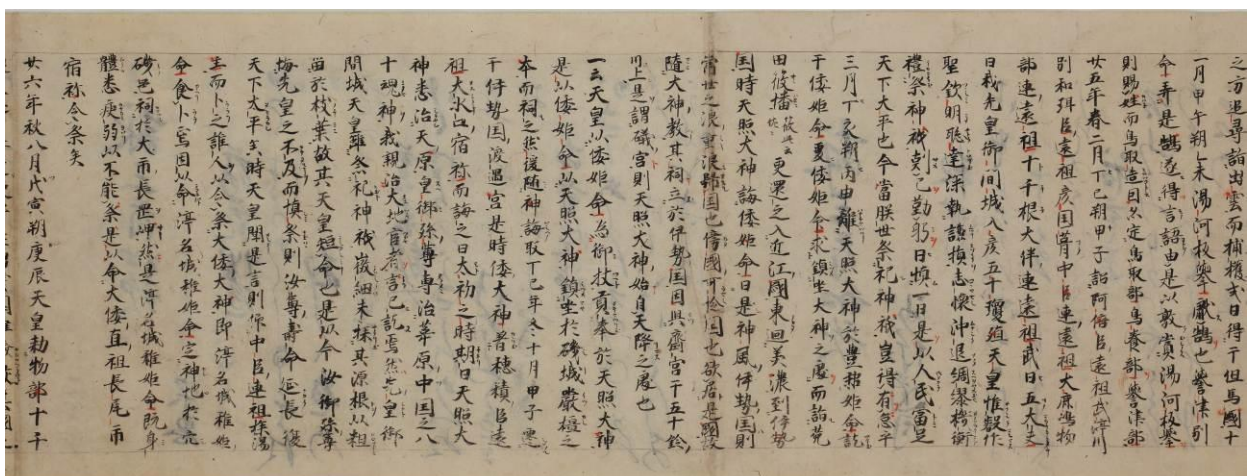 之方追尋詣出雲而捕獲或曰得于但馬國十
一月甲午朔乙未湯河板擧獻鵠也譽津別
命弄是鵠遂得言語由是以敦賞湯河板擧
則賜姓而鳥取造因亦定鳥取部鳥養部譽津部
廿五年春二月丁巳朔甲子詔阿倍臣遠祖武渟川
別和珥臣遠祖彦国葺中臣連遠祖大鹿嶋物
部連遠祖十千根大伴連遠祖武日五大夫
曰我先皇御間城入彦五十瓊殖天皇惟叡作
聖欽明聡達深執謙損志懐沖退綢繆機衡
禮祭神祇剋己勤躬日慎一日是以人民富足
天下太平也今當朕世祭祀神祇豈得有怠乎
三月丁亥朔丙申離天照大神於豊耜姫命託
于倭姫命爰倭姫命求鎮坐大神之處而詣菟
田筱幡更還之入近江國東廻美濃到伊勢
国時天照大神誨倭姫命曰是神風伊勢国則
常世之浪重浪歸国也傍國可怜国也欲居是國故
隨大神教其祠立於伊勢国因興齋宮于五十鈴
川上是謂礒宮則天照大神始自天降之處也
一云天皇以倭姫命為御杖貢奉於天照大神
是以倭姫命以天照大神鎮坐於磯城嚴橿之
本而祠之然後隨神誨取丁巳年冬十月甲子遷
于伊勢国渡遇宮是時倭大神著穂積臣遠
祖大水口宿祢而誨之曰太初之時期曰天照大
神悉治天原皇御孫尊専治葦原中国之八
十魂神我親治大地官者言已訖焉然先皇御
間城天皇雖祭祀神祇微細未探其源根以粗
留於枝葉故其天皇短命也是以今汝御孫尊
悔先皇之不及而慎祭則汝尊壽命延長復
天下太平矣時天皇聞是言則仰中臣連祖探湯
主而卜之誰人以令祭大倭大神即渟名城稚姫
命食卜焉因以命渟名城稚姫命定神地於穴
磯邑祠於大市長岡岬然是渟名城稚姫命既身
體悉痩弱以不能祭是以命大倭直祖長尾市
宿祢令祭矣
廿六年秋八月戊寅朔庚辰天皇勅物部十千